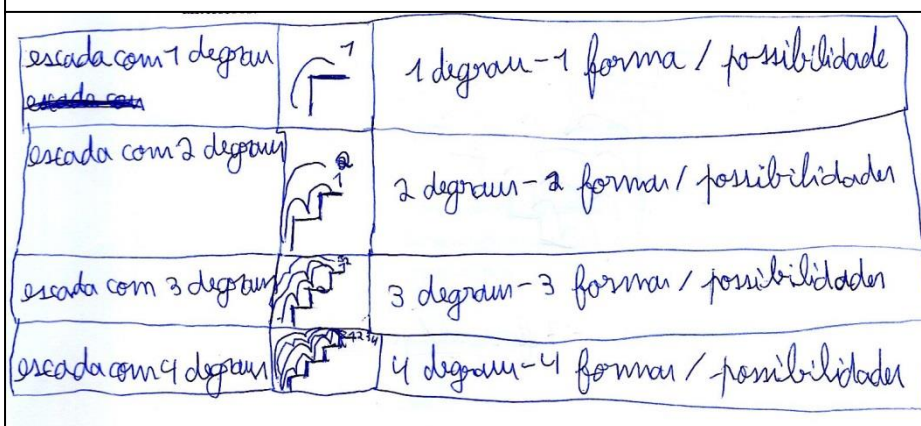 escada com 1 degrau
1
1 degrau - 1 forma / possibilidade
escada com 2 degraus
2
1
2 degraus - 2 formas / possibilidades
escada com 3 degraus
3 degraus - 3 formas / possibilidades
escada com 4 degraus
4 degraus - 4 formas / possibilidades